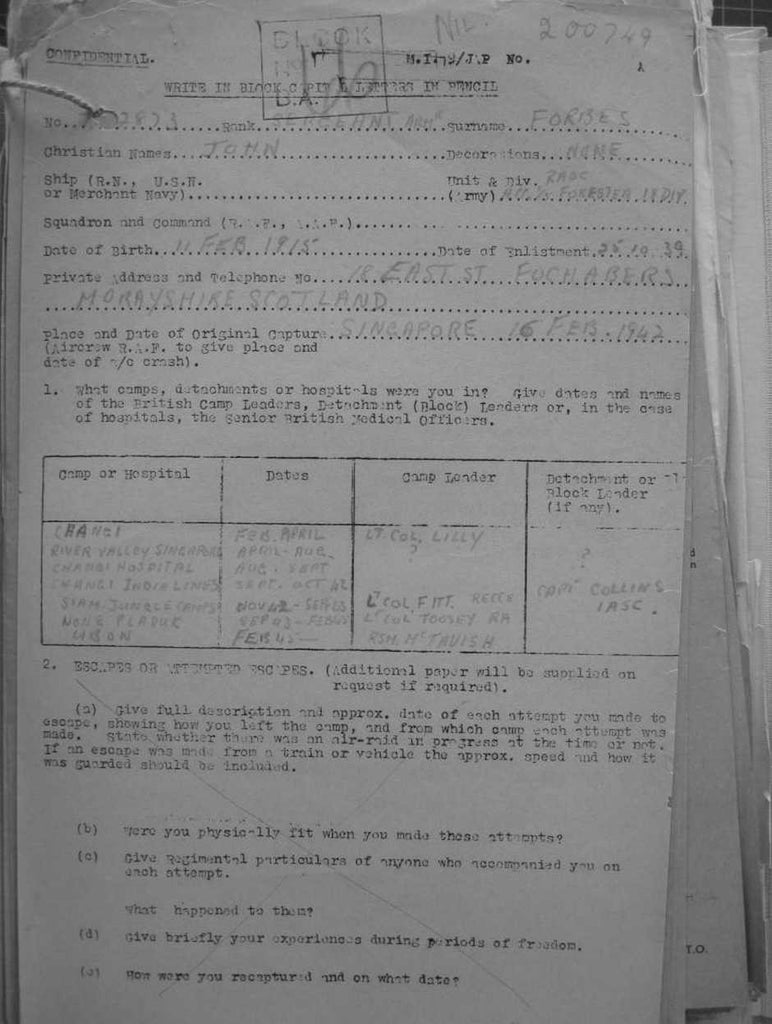 NIL. 200749
BLOCK
CONFIDENTIAL. M.I.9/J.P No.
WRITE IN BLOCK CAPITAL LETTERS IN PENCIL
No. Rank SERGEANT Surname FORBES
Christian Names JOHN Decorations NONE
Ship (R.N., U.S.N. Unit & Div. RAOC
or Merchant Navy) (Army) FORESTER 18 DIV
Squadron and Command (R.A.F., A.A.F.)
Date of Birth 11 FEB 1915 Date of Enlistment 25 10 39
Private Address and Telephone No. 18 EAST ST FOCHABERS
MORAYSHIRE SCOTLAND
Place and Date of Original Capture SINGAPORE 16 FEB. 1942
(Aircrew R.A.F. to give place and
date of a/c crash).
1. What camps, detachments or hospitals were you in? Give dates and names
of the British Camp Leaders, Detachment (Block) Leaders or, in the case
of hospitals, the Senior British Medical Officers.
Camp or Hospital Dates Camp Leader Detachment or
Block Leader
(if any).
CHANGI FEB. APRIL LT COL. LILLY
RIVER VALLEY SINGAPORE APRIL - AUG. ? ?
CHANGI HOSPITAL AUG. SEPT
CHANGI INDIA LINES SEPT. OCT 42 CAPT COLLINS
SIAM JUNGLE CAMPS NOV 42 - SEP 43 LT COL FITT. RECCE IASC.
NONG PLADUK SEP 43 - FEB 45 LT COL TOOSEY RA
UBON FEB 45 - RSM. McTAVISH
2. ESCAPES OR ATTEMPTED ESCAPES. (Additional paper will be supplied on
request if required).
(a) Give full description and approx. date of each attempt you made to
escape, showing how you left the camp, and from which camp each attempt was
made. State whether there was an air-raid in progress at the time or not.
If an escape was made from a train or vehicle the approx. speed and how it
was guarded should be included.
(b) Were you physically fit when you made these attempts?
(c) Give Regimental particulars of anyone who accompanied you on
each attempt.
What happened to them?
(d) Give briefly your experiences during periods of freedom.
T.O.
(e) How were you recaptured and on what date?